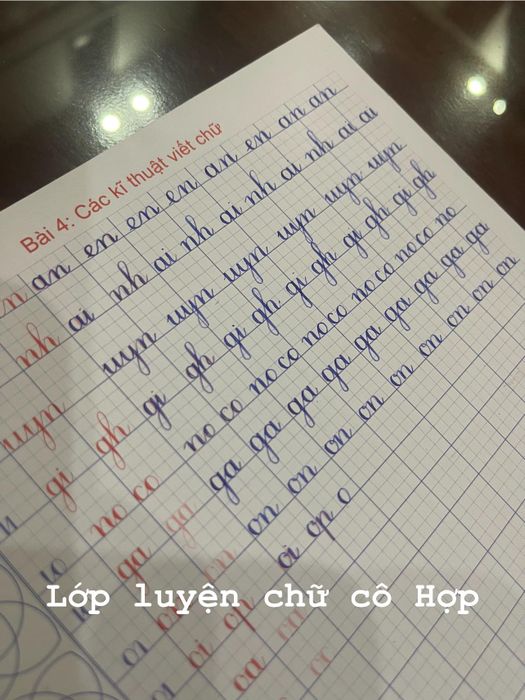 Bài 4: Các kĩ thuật viết chữ
an en en en an en an an
nh ai nh ai nh ai nh ai nh ai ai
uyn uyn uyn uyn uyn uyn uyn
gi gh gi gh gi gh gi gh gi gh gi gh
no co no co no co no co no co no co no
ga ga ga ga ga ga ga ga ga ga ga
on on on on on on on on on on
oi op oi op o
oa
Lớp luyện chữ cô Hợp